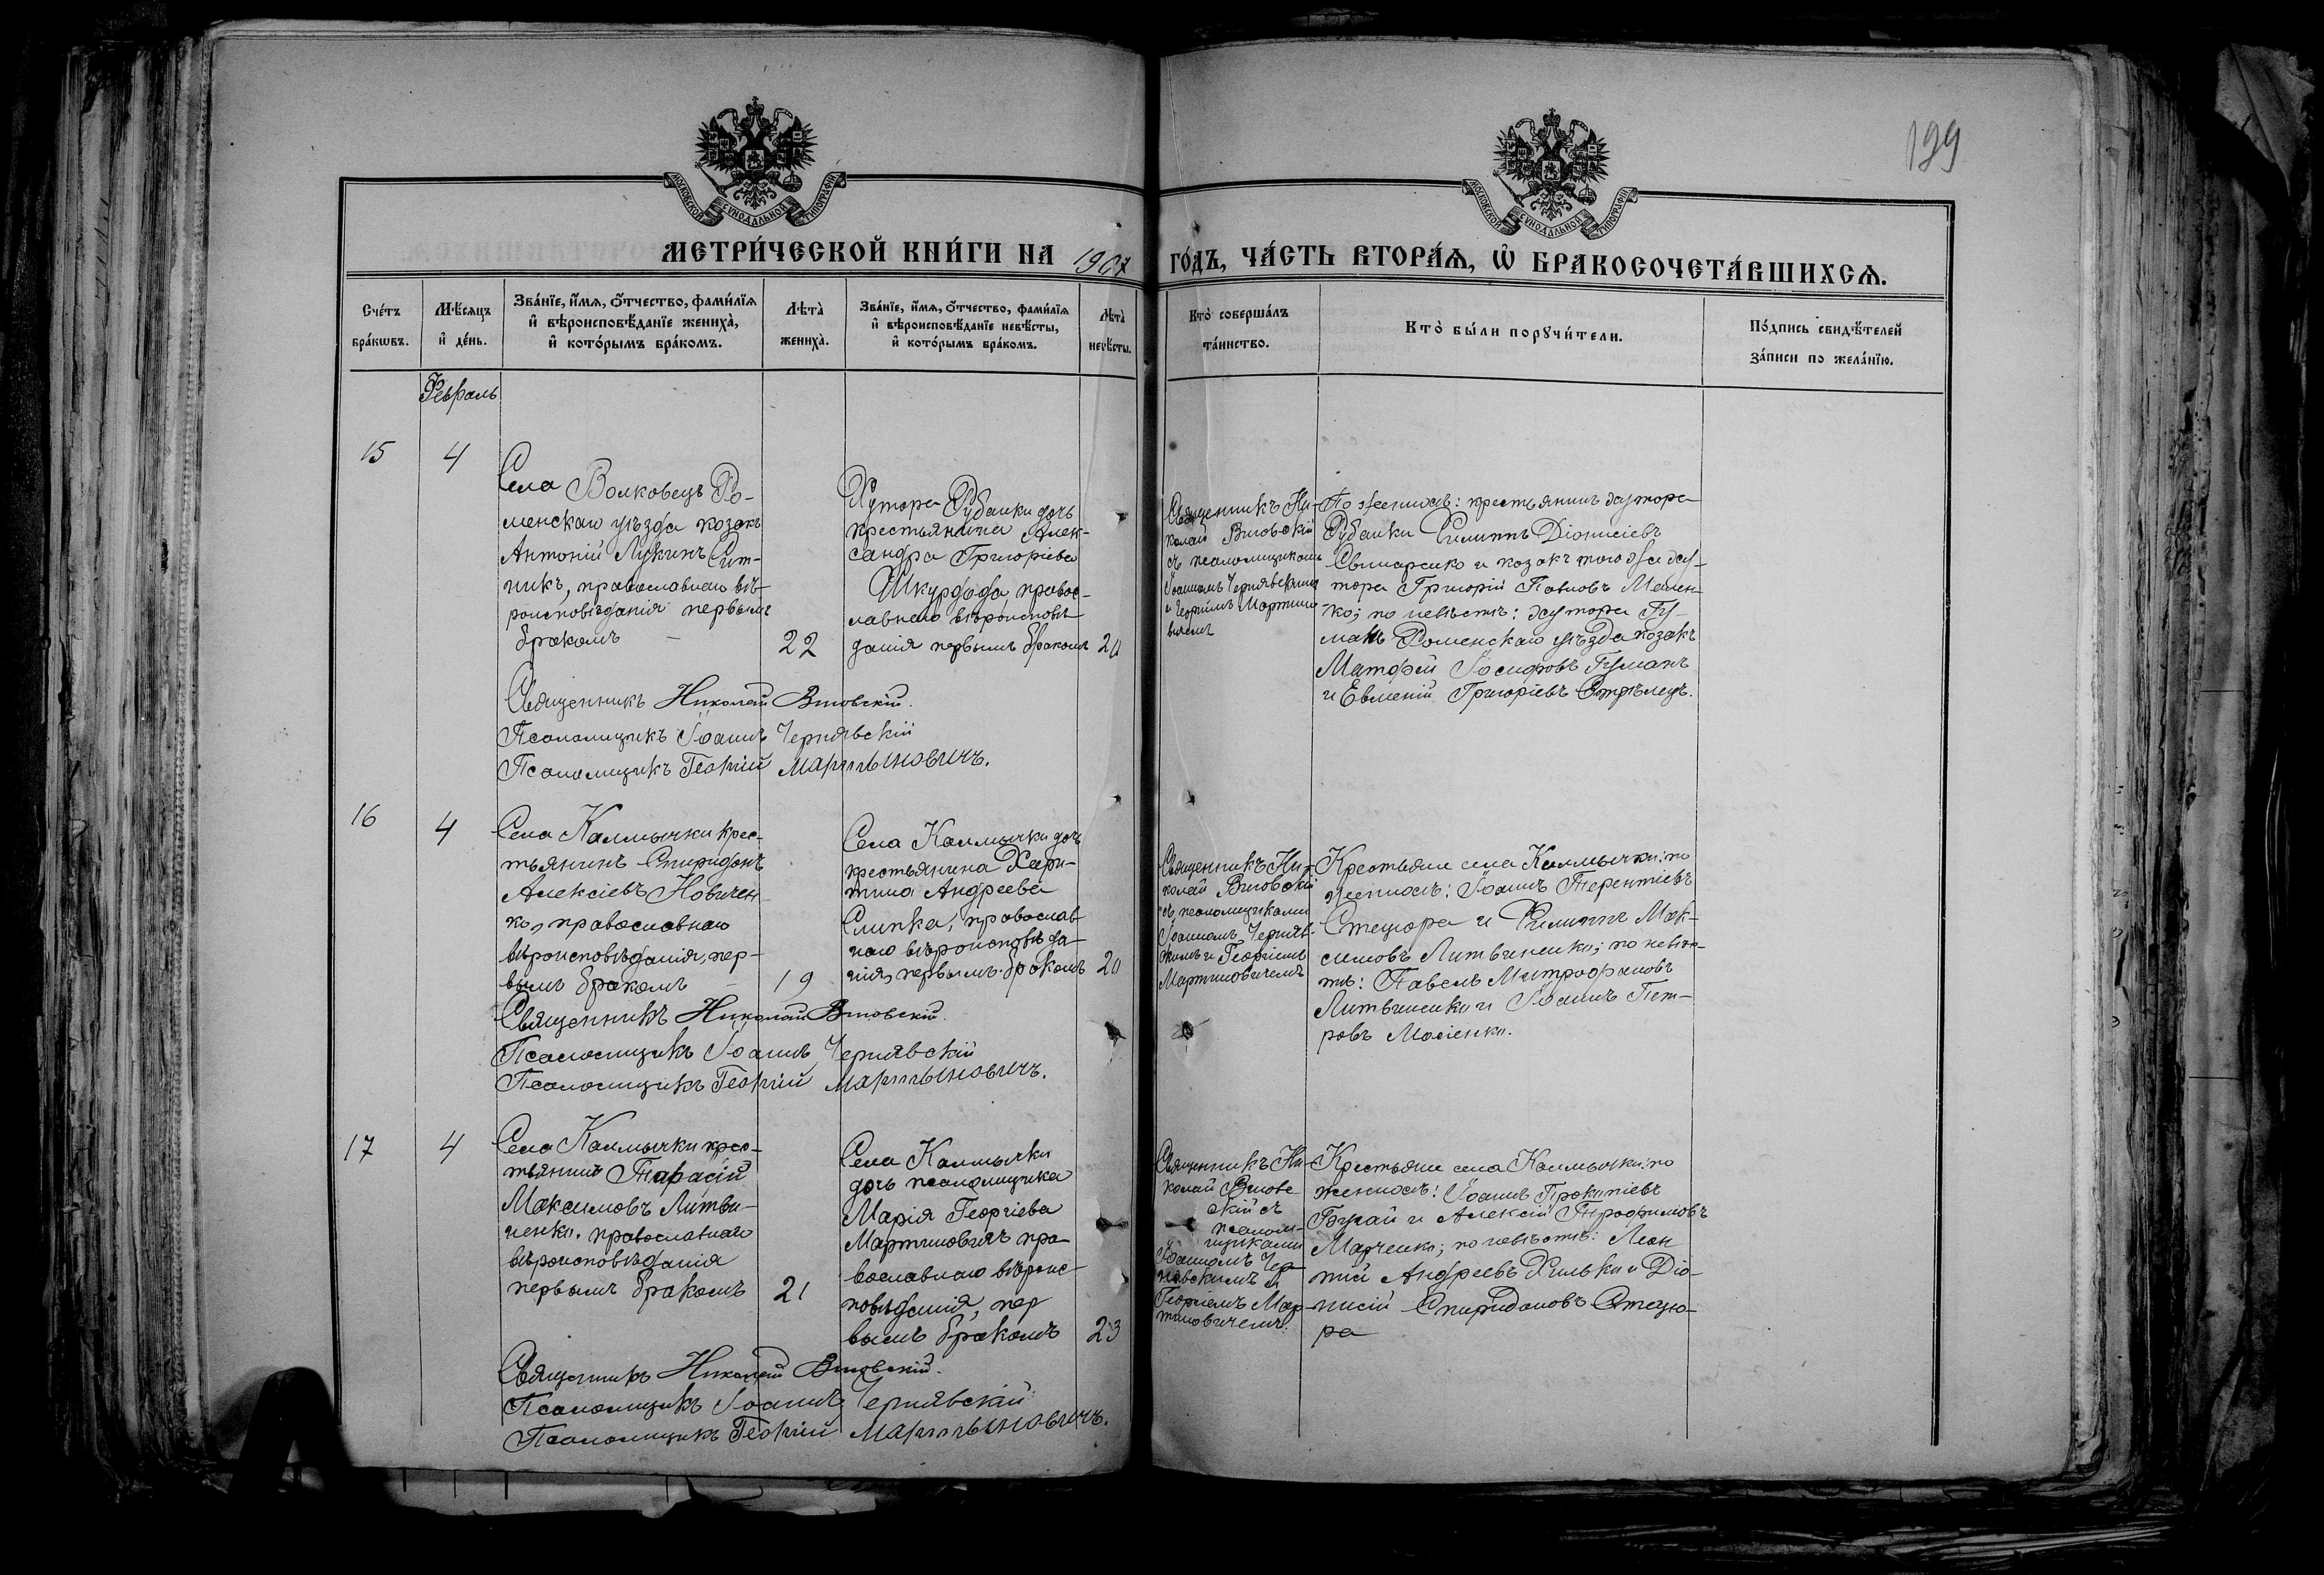 199
МОСКОВСКОЙ СѴНОДАЛЬНОЙ ТИПОГРАФІИ
МОСКОВСКОЙ СѴНОДАЛЬНОЙ ТИПОГРАФІИ
МЕТРИ́ЧЕСКОЙ КНИ́ГИ НА 1907 ГО́ДЪ, ЧА́СТЬ ВТОРА́Ѧ, Ѽ БРАКОСОЧЕТА́ВШИХСѦ.
Сче́тъ
бра́кωвъ.
Мѣ́сѧцъ
и҆ де́нь.
Зва́нїе, и҆́мѧ, ѻ҆́тчество, фами́лїѧ
и҆ вѣроисповѣ́данїе жениха̀,
и҆ кото́рымъ бра́комъ.
Лѣта̀
жениха̀.
Зва́нїе, и҆́мѧ, ѻ҆́тчество, фами́лїѧ
и҆ вѣроисповѣ́данїе невѣ́сты,
и҆ кото́рымъ бра́комъ.
Лѣта̀
невѣ́сты.
Кто̀ соверша́лъ
та́инство.
Кто̀ бы́ли порꙋчи́тели.
По́дпись свидѣ́телей
за́писи по жела́нїю.
Февраль
15
4
Села Волковецъ Ро-
менскаго уѣзда козакъ
Антоній Лукинъ Сит-
никъ, православнаго вѣ-
роисповѣданія первымъ
бракомъ
22
Хутора Рубанки дочь
крестьянина Алек-
сандра Григоріева
Шкурдода правос-
лавнаго вѣроисповѣ-
данія первымъ бракомъ
20
Священникъ Ни-
колай Витовскій
съ псаломщикомъ
Іоанномъ Чернявскимъ
и Георгіемъ Мартино-
вичемъ
По женихѣ: крестьянинъ хутора
Рубанки Филиппъ Діонисіевъ
Свинаренко и козакъ того же ху-
тора Григорій Павловъ
ко; по невѣстѣ: хутора Гу-
манъ Роменскаго уѣзда козакъ
Матфей Іосифовъ Гуманъ
и Евменій Григоріевъ Стрѣлецъ.
Священникъ Николай Витовскій.
Псаломщикъ Іоаннъ Чернявскій
Псаломщикъ Георгій Мартыновичъ.
16
4
Села Калмычки крес-
тьянинъ Спиридонъ
Алексіевъ Новичен-
ко, православнаго
вѣроисповѣданія, пер-
вымъ бракомъ
19
Села Калмычки дочь
крестьянина Хари-
тина Андреева
Слипка, православ-
наго вѣроисповѣда-
нія, первымъ бракомъ
20
Священникъ Ни-
колай Витовскій
съ псаломщиками
Іоанномъ Чернявс-
кимъ и Георгіемъ
Мартиновичемъ
Крестьяне села Калмычки: по
женихѣ: Іоаннъ Терентіевъ
Стецюра и Филиппъ Мак-
симовъ Литвиненко; по невѣс-
тѣ: Павелъ Митрофановъ
Литвиненко и Іоаннъ Пет-
ровъ Мосіенко.
Священникъ Николай Витовскій.
Псаломщикъ Іоаннъ Чернявскій
Псаломщикъ Георгій Мартыновичъ.
17
4
Села Калмычки крес-
тьянинъ Тарасій
Максимовъ Литви-
ненко, православнаго
вѣроисповѣданія
первымъ бракомъ
21
Села Калмычки
дочь псаломщика
Марія Георгіева
Мартиновичъ пра-
вославнаго вѣроис-
повѣданія, пер
вымъ бракомъ
23
Священникъ Ни-
колай Витов-
скій съ
псалом-
щиками
Іоанномъ Чер-
нявскимъ и
Георгіемъ Мар-
тиновичемъ.
Крестьяне села Калмычки: по
женихѣ: Іоаннъ Прокопіевъ
Бугай и Алексій Трофимовъ
Марченко; по невѣстѣ: Леон
тій Андреевъ Хилько и Діо-
нисій Спиридоновъ Стецю-
ра
Священникъ Николай Витовскій.
Псаломщикъ Іоаннъ Чернявскій
Псаломщикъ Георгій Мартыновичъ.